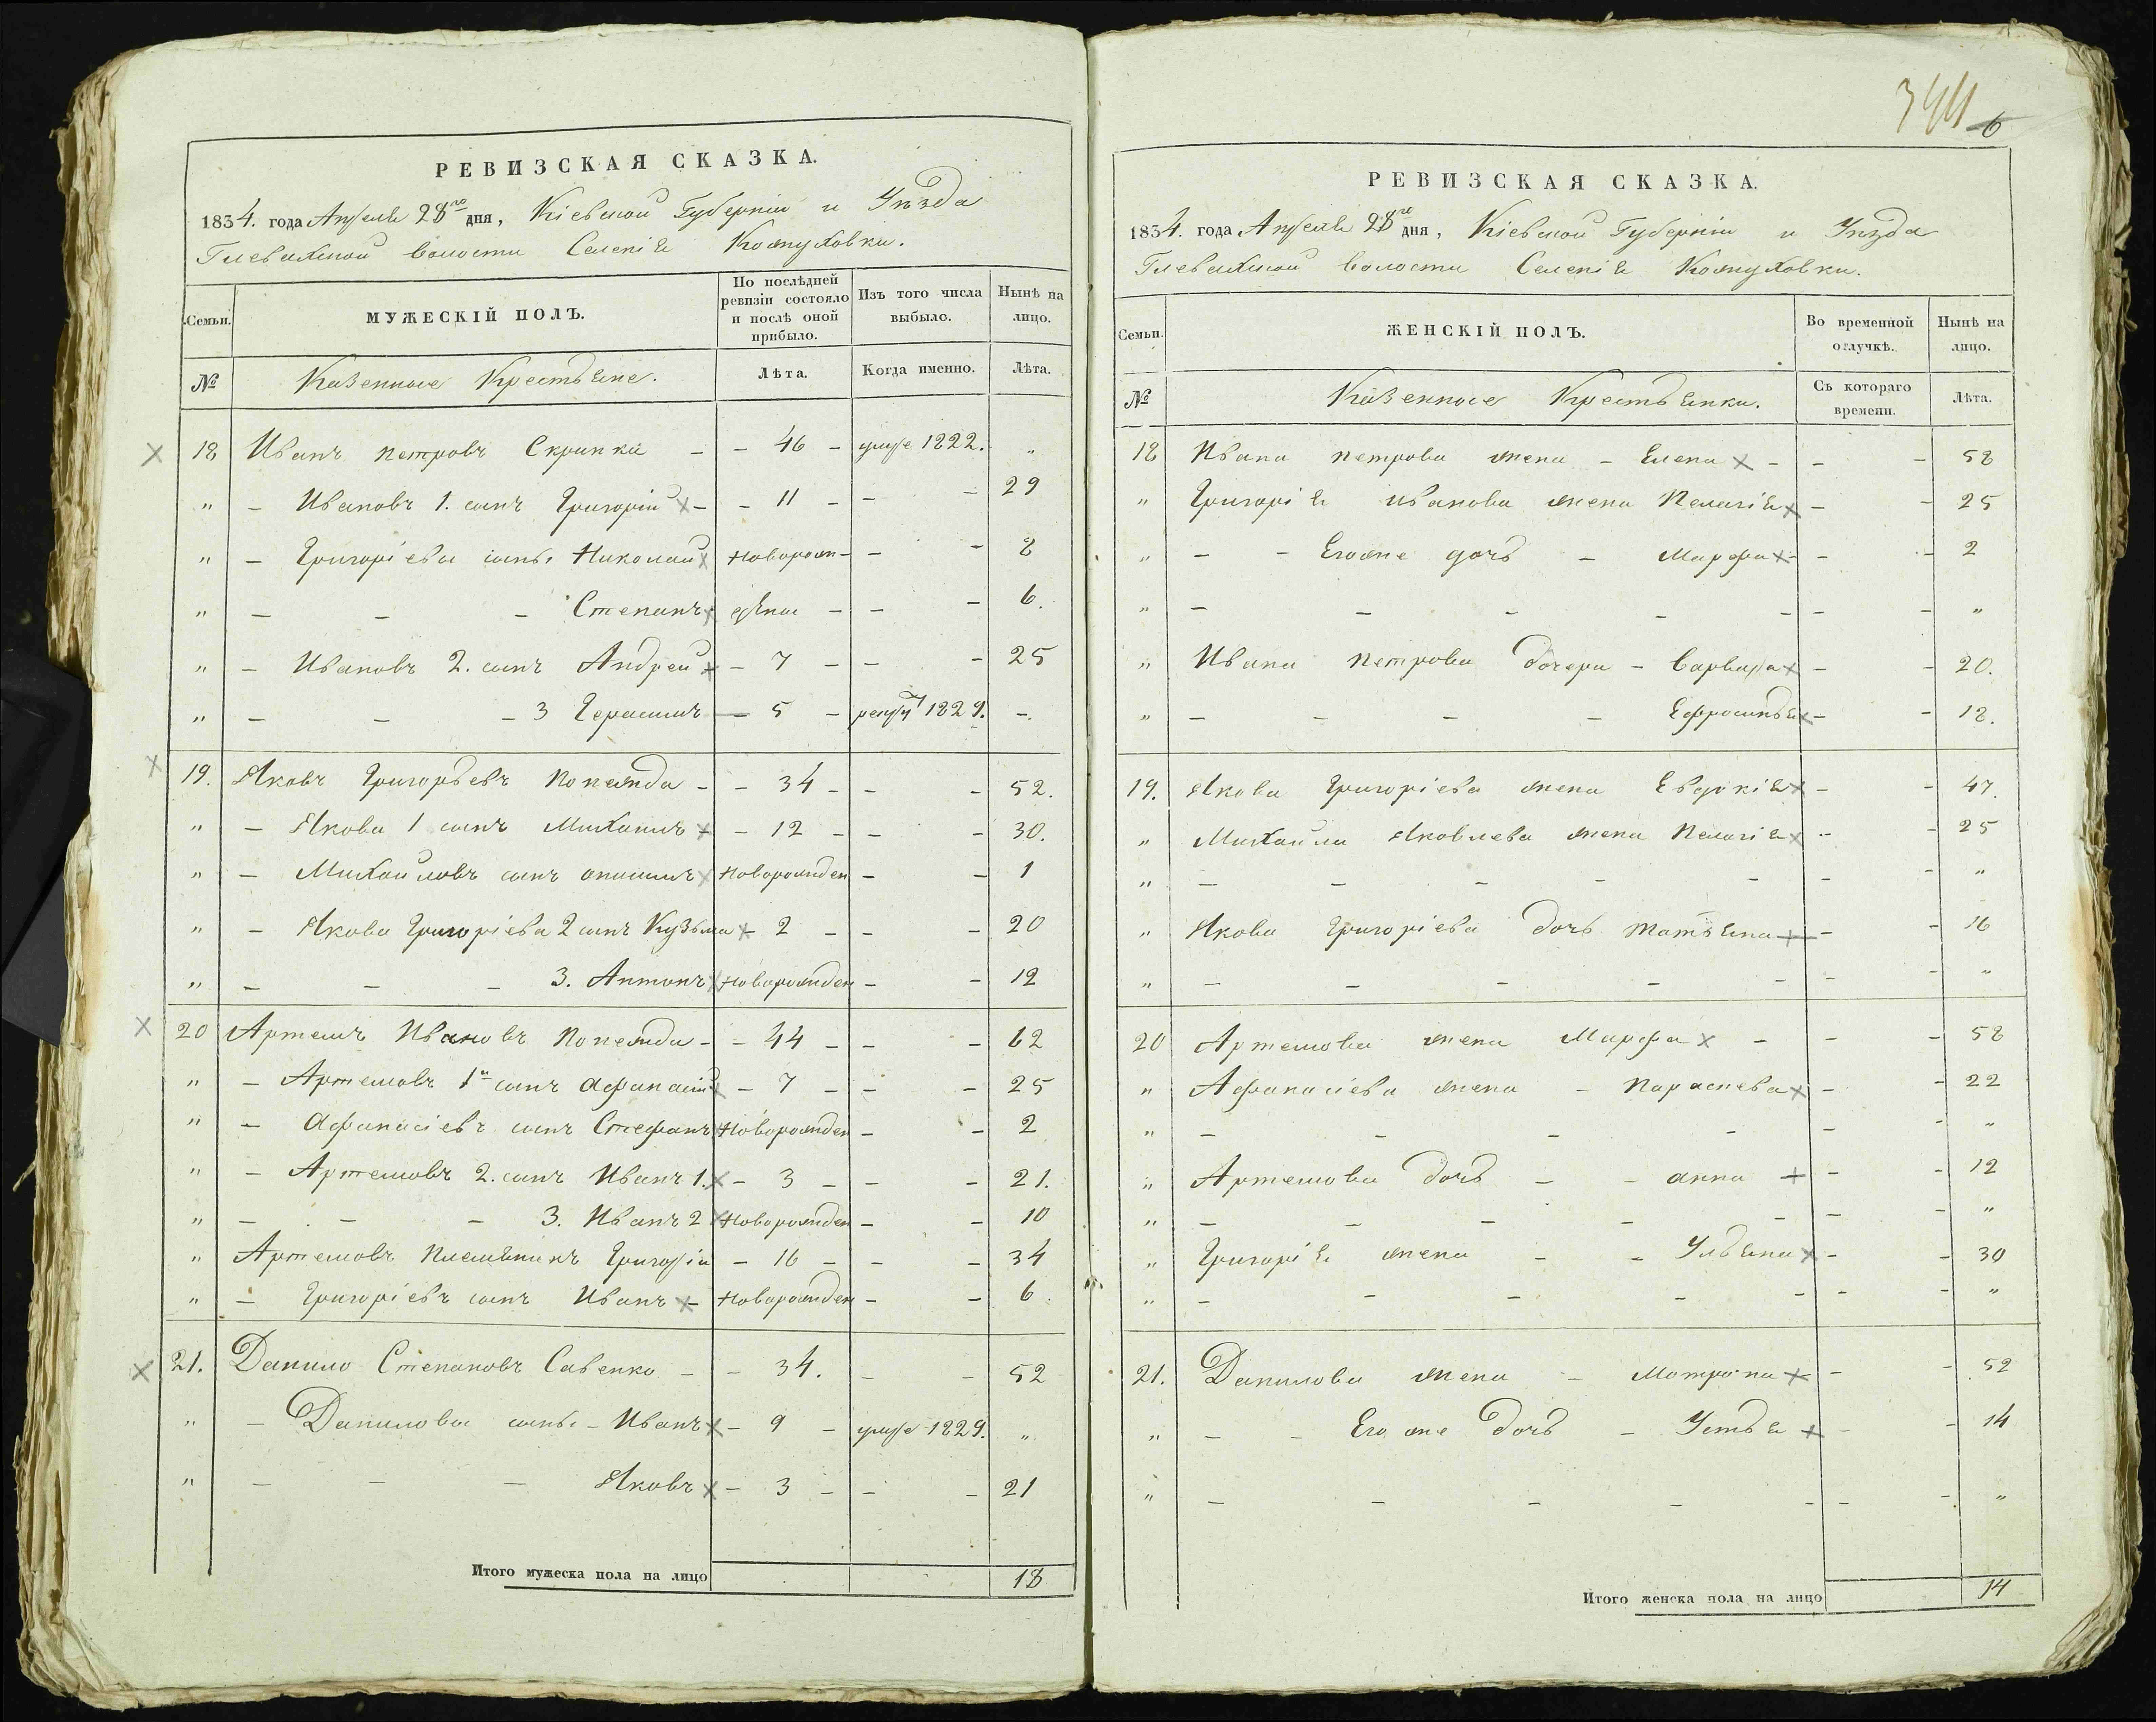 РЕВИЗСКАЯ СКАЗКА.
1834. года Апреля 28го дня, Кіевской Губерніи и Уѣзда
Глевахской волости Селенія Кожуховки.
Семьи.
МУЖЕСКІЙ ПОЛЪ.
По послѣдней ревизіи состояло и послѣ оной прибыло.
Изъ того числа выбыло.
Нынѣ на лицо.
№
Казенные Крестьяне.
Лѣта.
Когда именно.
Лѣта.
18 Иванъ петровъ Скрипка - - 46 - умре 1822. "
" - Ивановъ 1. сынъ Григорій - - 11 - - - 29
" - Григоріевы сыны Николай Новорож- - - 8
" - - - Степанъ дѣны - - - 6.
" - Ивановъ 2. сынъ Андрей - 7 - - - 25
" - - - 3 Герасимъ - 5 - 1829. -.
19. Яковъ Григорьевъ Попеляда - - 34 - - - 52.
" - Якова 1 сынъ Михаилъ - 12 - - - 30.
" - Михайловъ сынъ онисимъ Новорожден - - 1
" - Якова Григоріева 2 сынъ Кузьма - 2 - - - 20
" - - - 3. Антонъ Новорожден - - 12
20 Артемъ Ивановъ - - 44 - - - 62
" - Артемовъ 1й сынъ Афанасій - 7 - - - 25
" - Афанасіевъ сынъ Стефанъ Новорожден - - 2
" - Артемовъ 2. сынъ Иванъ 1. - 3 - - - 21.
" - - - 3. Иванъ 2 Новорожден - - 10
" Артемовъ племяникъ Григорій - 16 - - - 34
" - Григоріевъ сынъ Иванъ - Новорожден - - 6.
21. Данило Степановъ Савенко - - 34. - - 52
" - Даниловы сыны - Иванъ - 9 - умре 1829. "
" - - - Яковъ - 3 - - - 21
Итого мужеска пола на лицо 18
344 6
РЕВИЗСКАЯ СКАЗКА.
1834. года Апреля 28го дня, Кіевской Губерніи и Уѣзда
Глевахской волости Селенія Кожуховки.
Семьи.
ЖЕНСКІЙ ПОЛЪ.
Во временной отлучкѣ.
Нынѣ на лицо.
№
Казенные Крестьянки.
Съ котораго времени.
Лѣта.
18 Ивана петрова жена - Елена - - - 58
" Григорія иванова жена Пелагія - - 25
" - - Егоже дочь - Марфа - - - 2
" - - - - - - - "
" Ивана петрова дочери - варвара - - 20.
" - - - - Ефросинья - - 18.
19. Якова Григоріева жена Евдокія - - 47.
" Михайла Яковлева жена Пелагія - - 25
" - - - - - - - "
" Якова Григоріева дочь татьяна - - 16
" - - - - - - - "
20 Артемова жена Марфа - - - 58
" Афанасіева жена - параскева - - 22
" - - - - - - "
" Артемова дочь - - анна - - 12
" - - - - - - - "
" Григорія жена - - Ульяна - - 30
" - - - - - - - "
21. Данилова жена - Мотрона - - 52
" - - Его же дочь - Устья - - 14
" - - - - - - - "
Итого женска пола на лицо 14